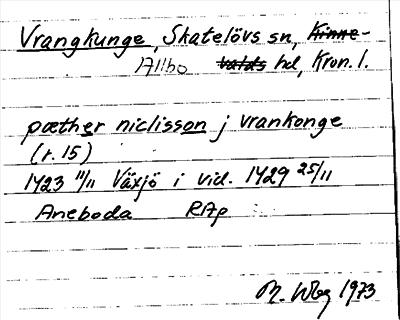 Vrangkunge, Skatelövs sn, Kinne-
Allbo valds hd, Kron. l.
pæther niclisson j vrankonge
(r. 15)
1423 11/11 Växjö i vid. 1429 25/11
Aneboda RAp
M. Wbg 1973